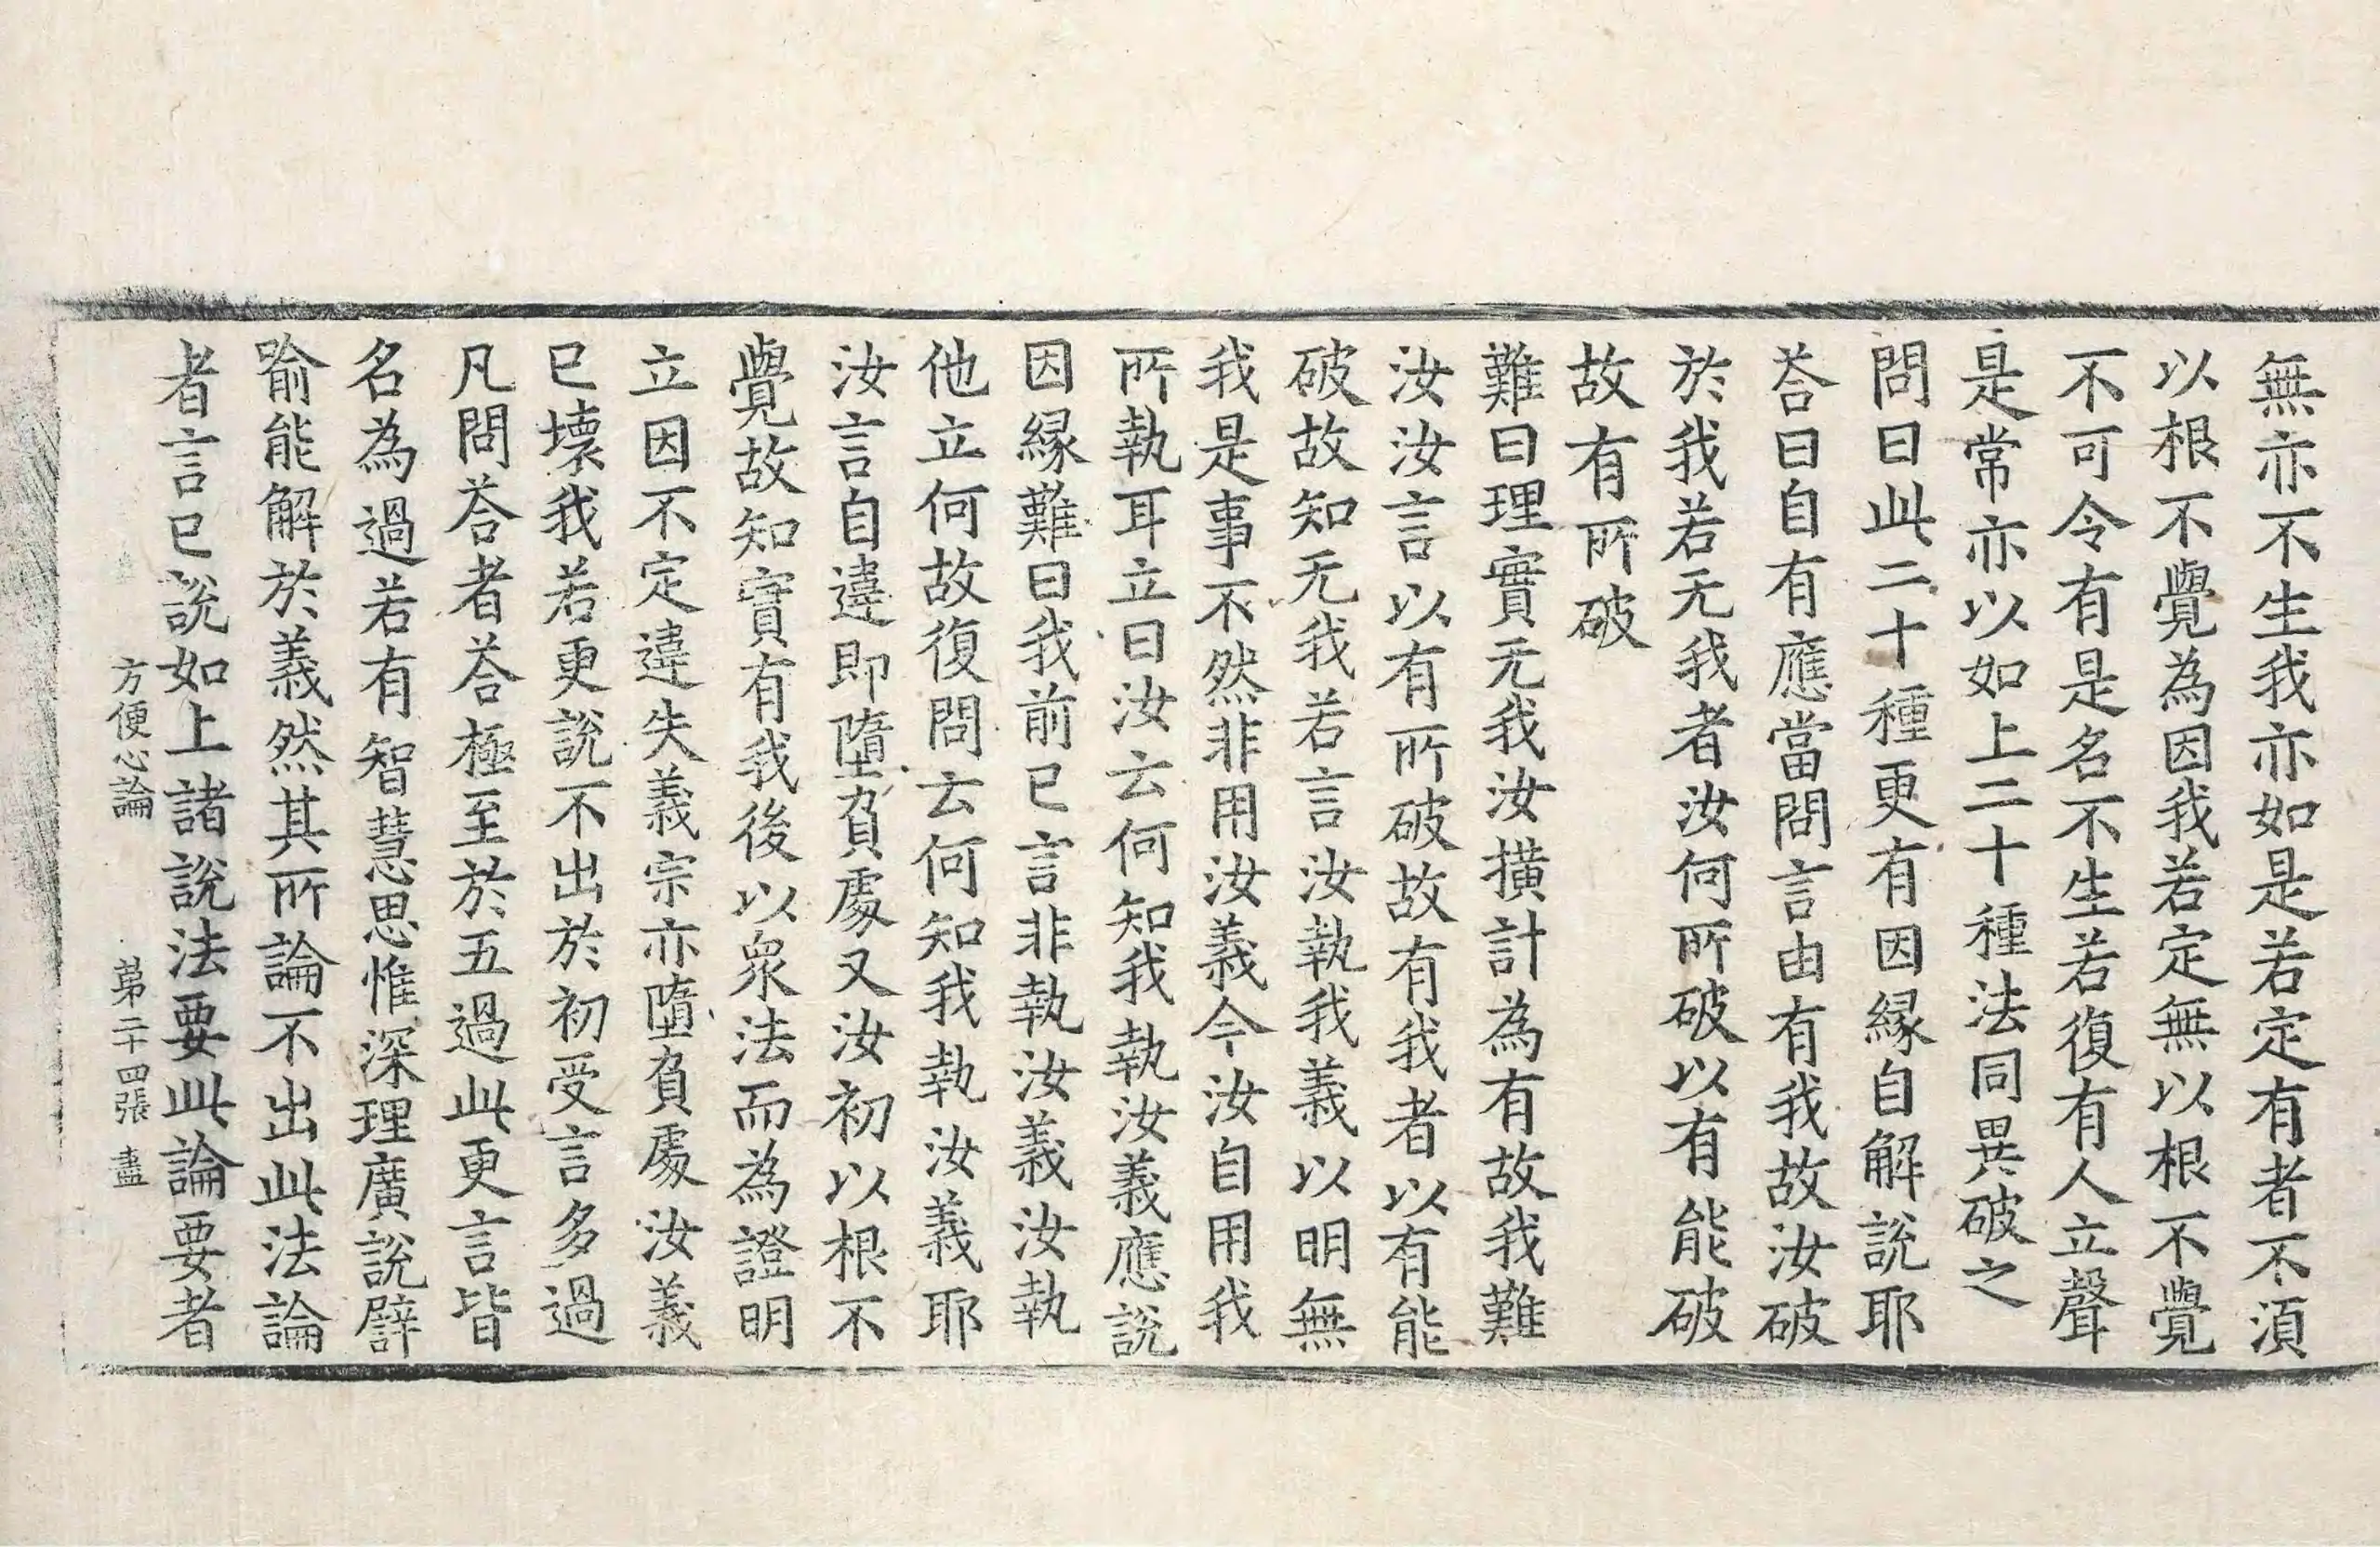 無亦不生我亦如是若定有者不湏
以根不覺為因我若定無以根不覺
不可令有是名不生若復有人立聲
是常亦以如上二十種法同異破之
問曰此二十種更有因緣自解說耶
荅曰自有應當問言由有我故汝破
於我若无我者汝何所破以有能破
故有所破
難曰理實无我汝撗計為有故我難
汝汝言以有所破故有我者以有能
破故知无我若言汝執我義以明無
我是事不然非用汝義今汝自用我
所執耳立曰汝云何知我執汝義應說
因緣難曰我前已言非執汝義汝執
他立何故復問云何知我執汝義耶
汝言自違即墮負處又汝初以根不
覺故知實有我後以衆法而為證明
立因不定違失義宗亦墮負處汝義
已壞我若更說不出於初受言多過
凡問荅者荅極至於五過此更言皆
名為過若有智慧思惟深理廣說譬
喻能解於義然其所論不出此法論
者言已說如上諸說法要此論要者
方便心論 苐二十四張 盡